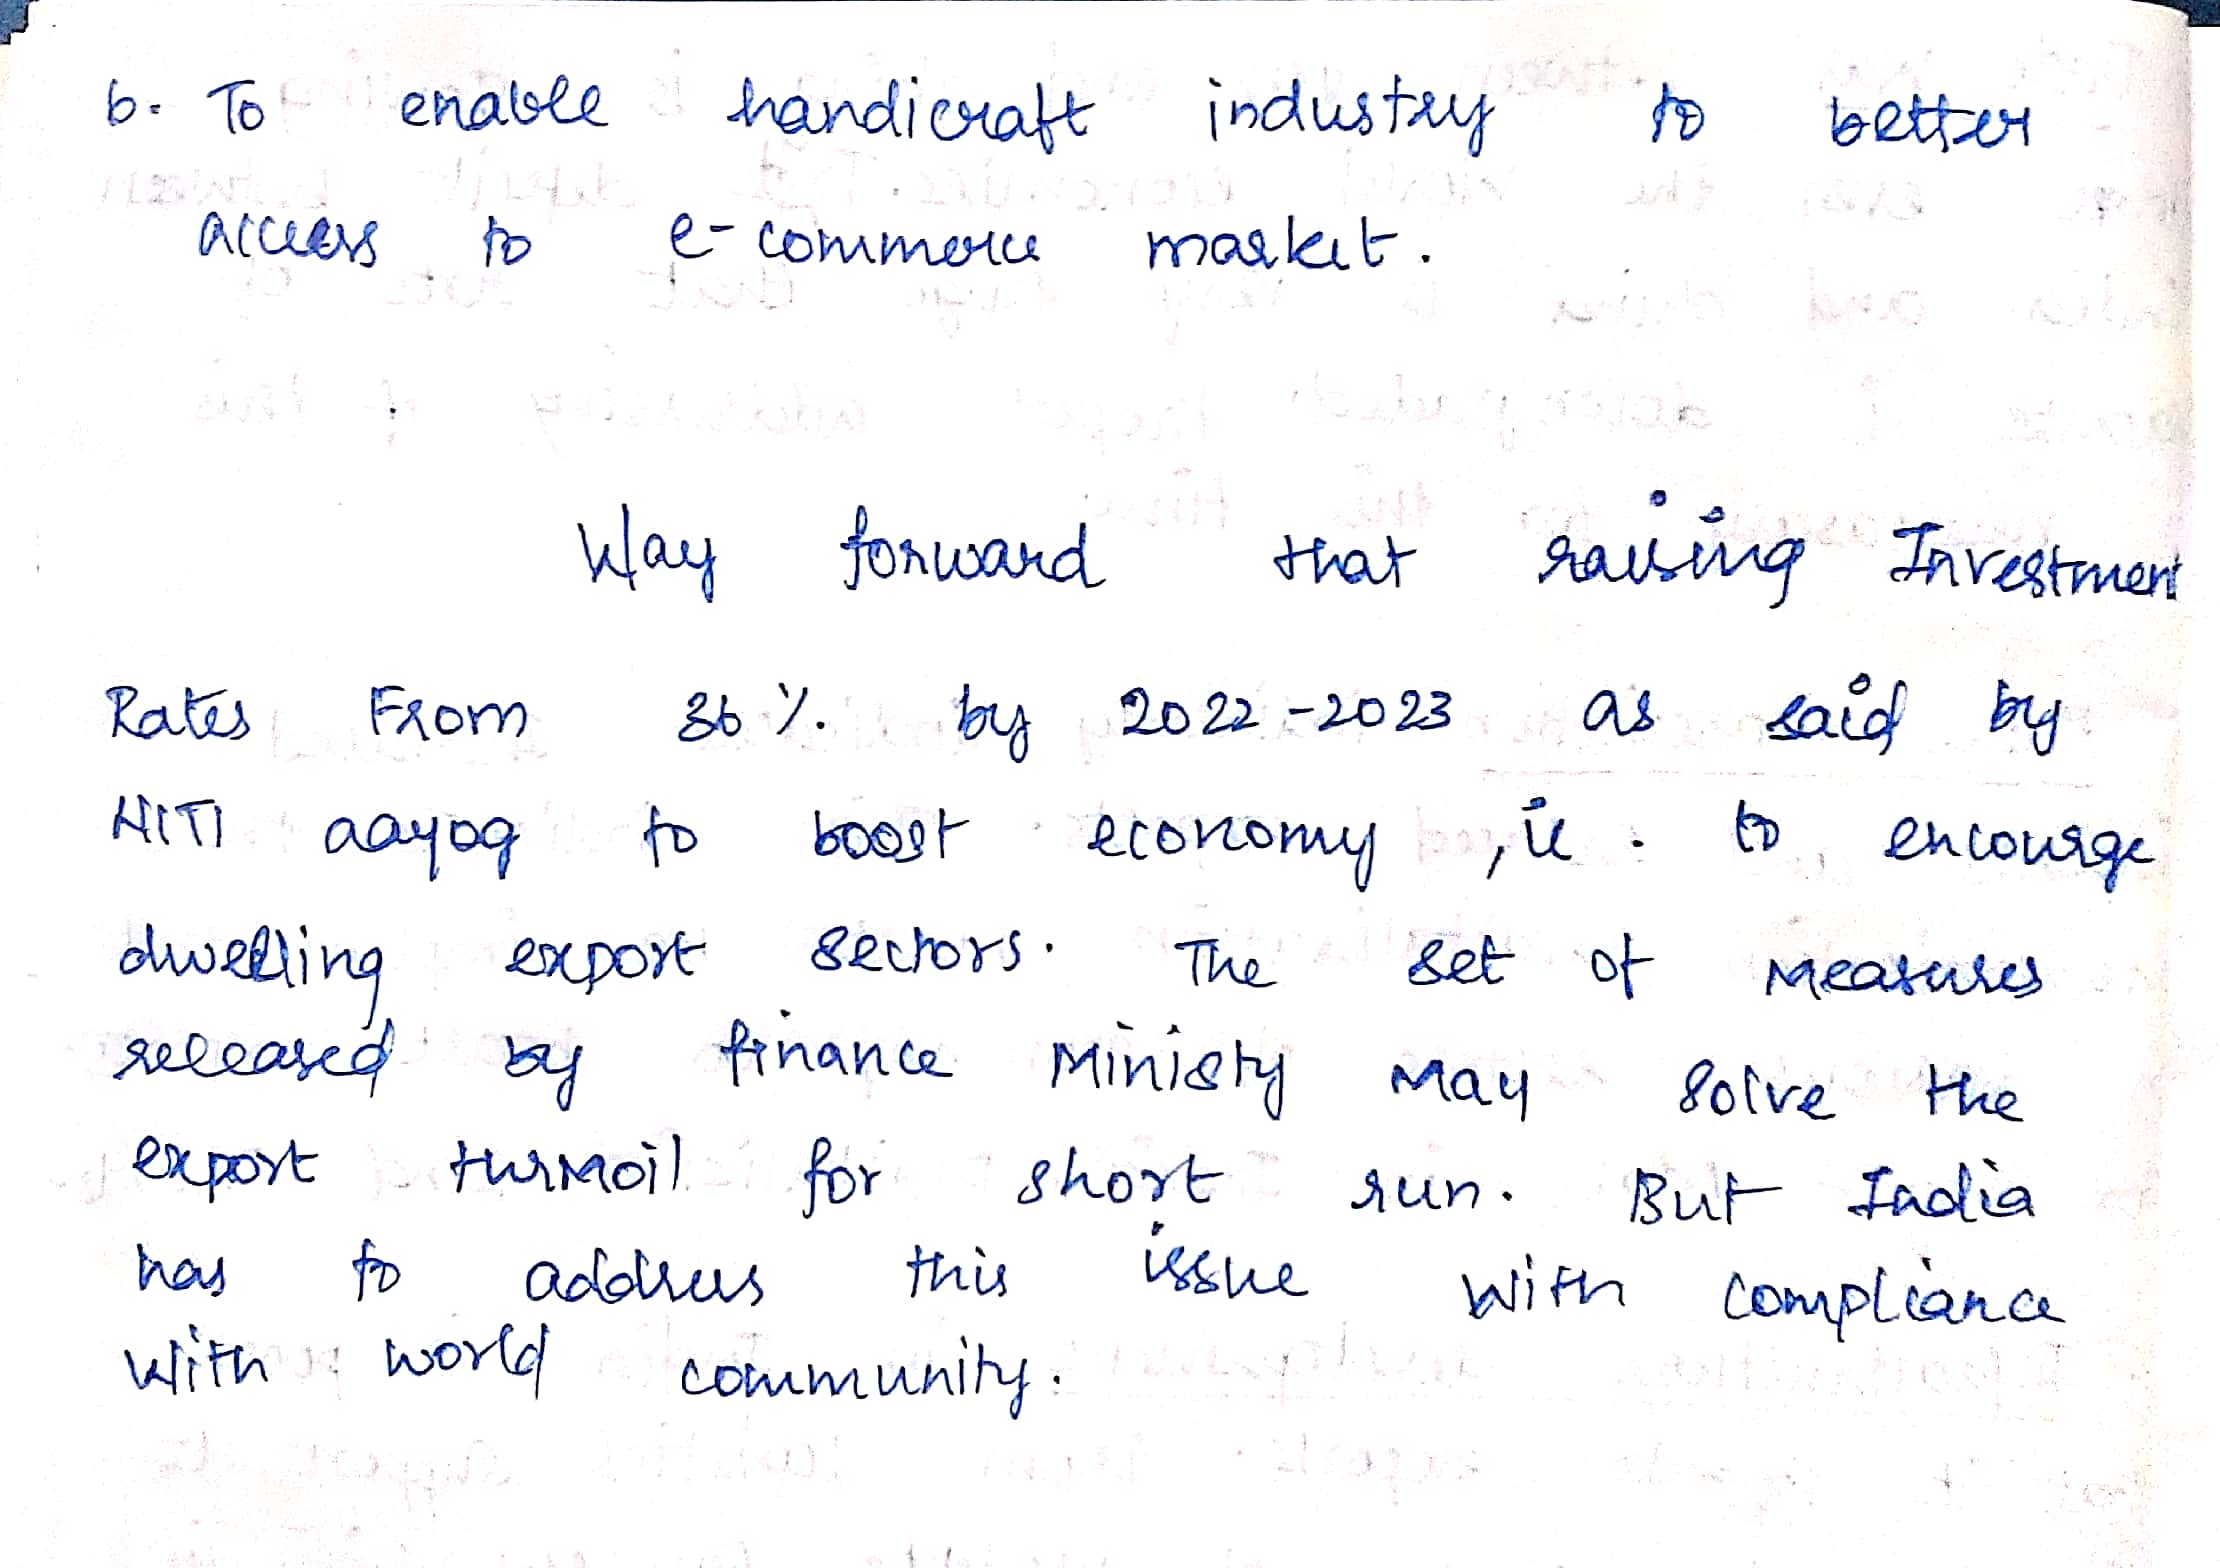 6. To enable handicraft industry to better
access to e-commerce market.
Way forward that raising Investment
Rates From 36 %. by 2022-2023 as said by
NITI aayog to boost economy, ie. to encourge
dwelling export sectors. The set of Measures
released by finance Ministy May solve the
export turmoil for short run. But India
has to address this issue with compliance
with world community.